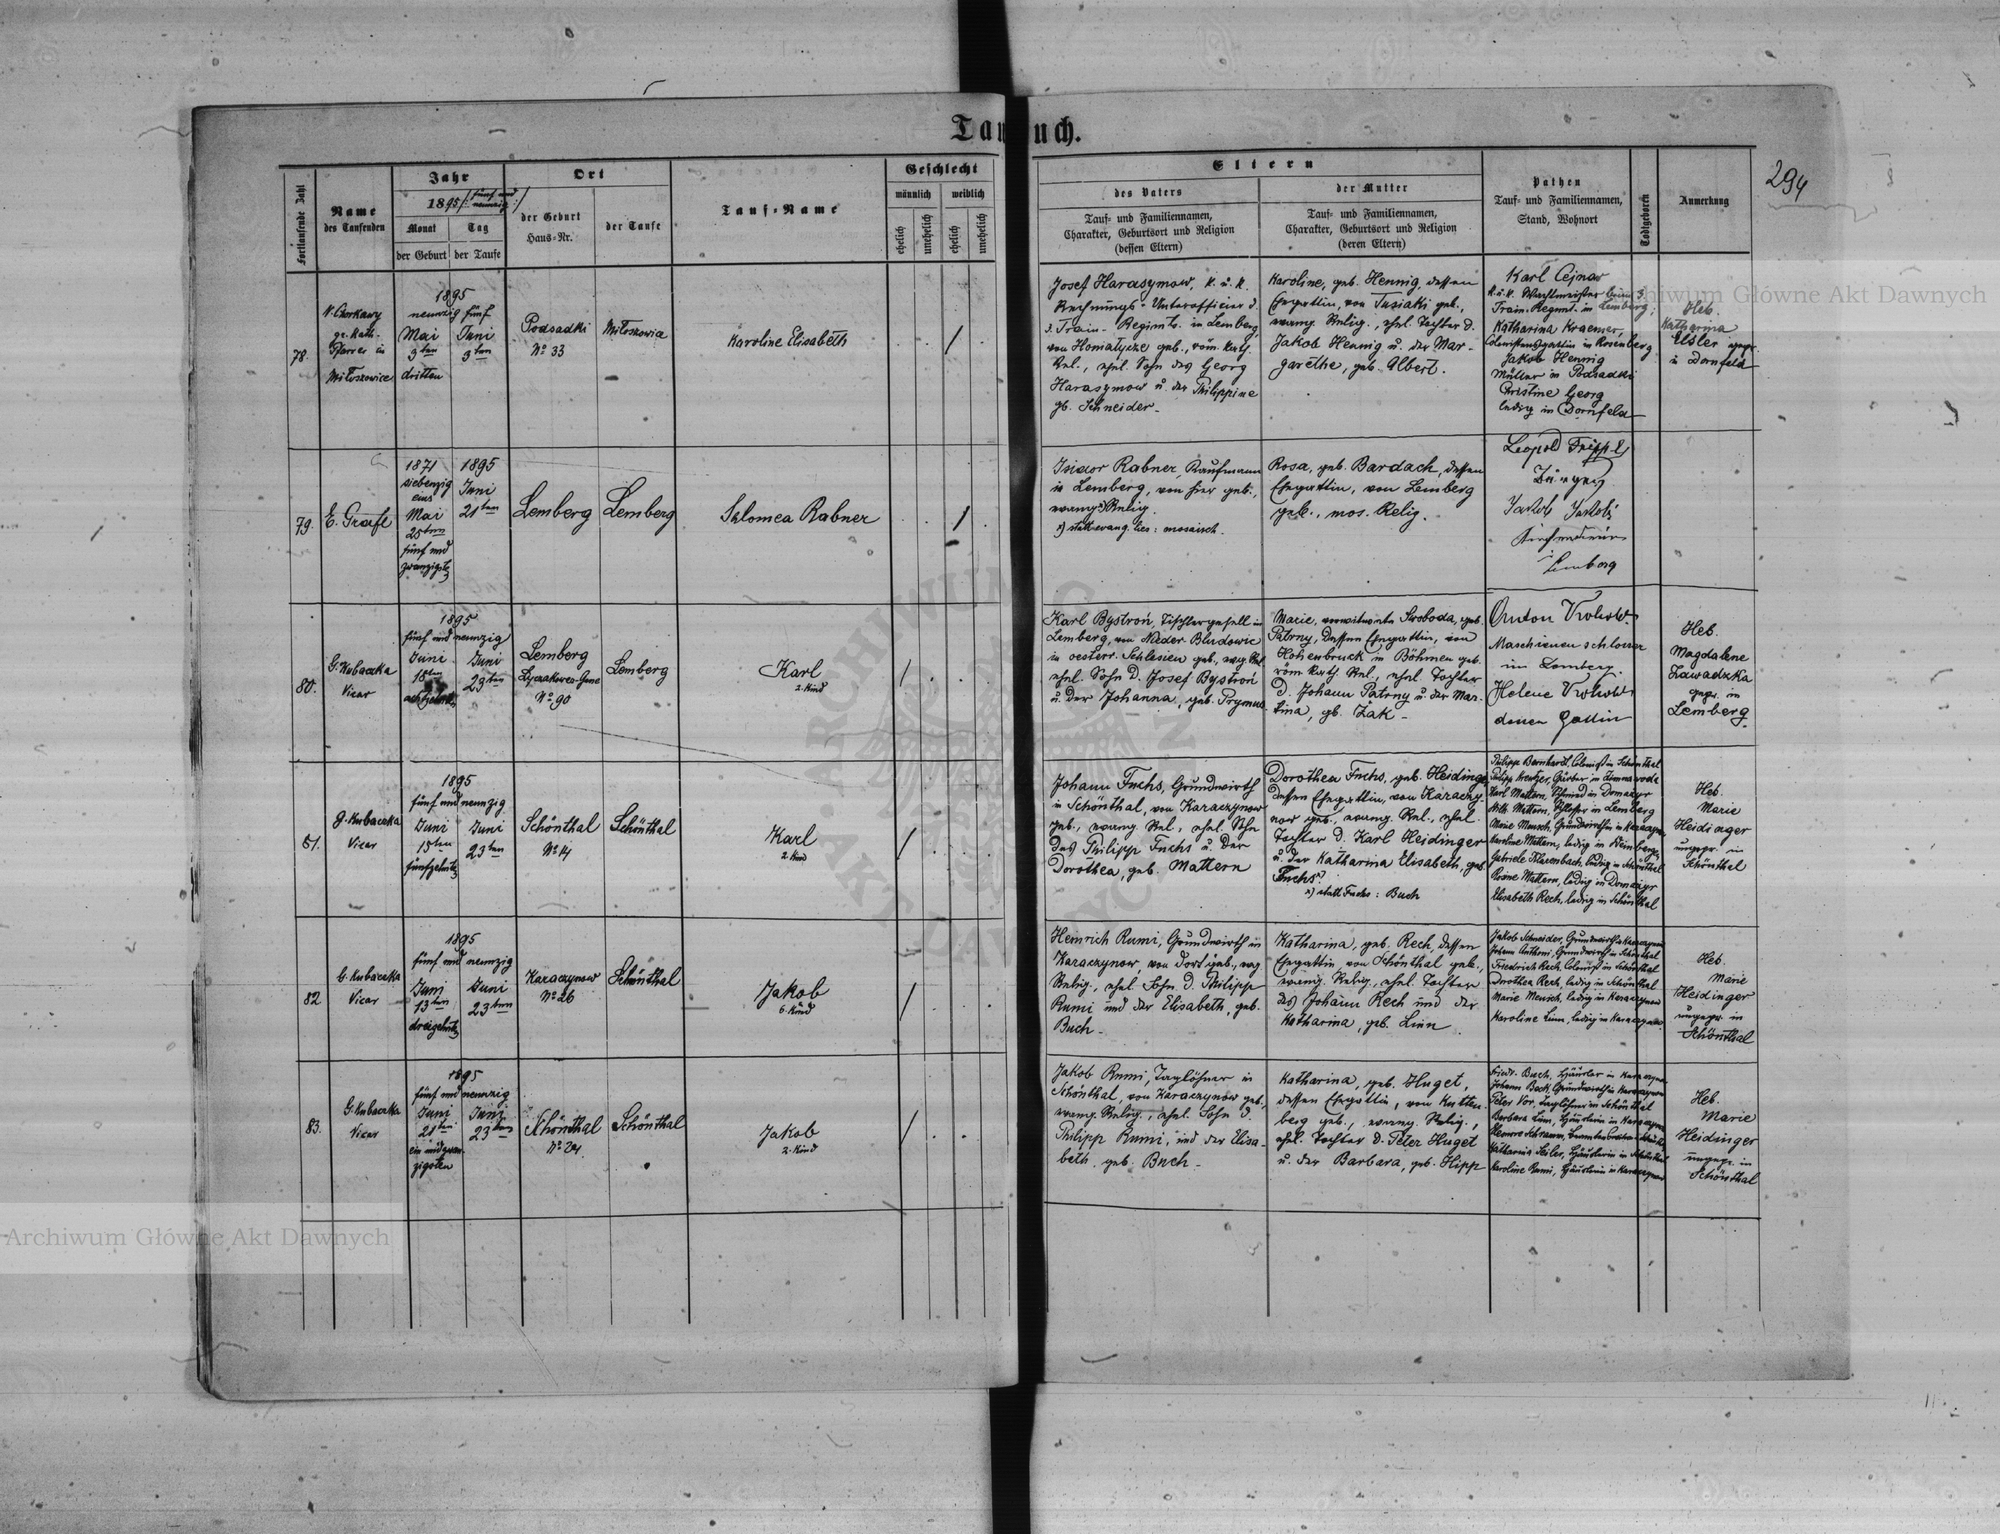 Taufbuch.
294
Fortlaufende Zahl
Name
des Taufenden
Jahr
1895 /: fünf und
neunzig :/
Monat
Tag
der Geburt
der Taufe
Ort
der Geburt
Haus-Nr.
der Taufe
Tauf-Name
Geschlecht
männlich
weiblich
ehelich
unehelich
ehelich
unehelich
Eltern
des Vaters
Tauf- und Familiennamen,
Charakter, Geburtsort und Religion
(dessen Eltern)
der Mutter
Tauf- und Familiennamen,
Charakter, Geburtsort und Religion
(deren Eltern)
Pathen
Tauf- und Familiennamen,
Stand, Wohnort
Todtgeboren
Anmerkung
78.
gr. Kath.
Pfarrer in
Miłoszowice
1895
neunzig fünf
Mai
3ten
dritten
Juni
9ten
Podsadki
No 33
Karoline Elisabeth
Josef Harasymow, k. u. k.
Rechnungs-Unterofficier d.
3. Train-Regimts. in Lemberg,
von Honiatycze geb., röm. kath.
Rel., ehel. Sohn des Georg
Harasymow u. der Philippine
gb. Schneider.
Karoline, geb. Hennig, dessen
Ehegattin, von Tusiaki geb.,
evang. Relig., ehel. Tochter d.
Jakob Hennig u. der Mar-
garethe, geb. Albert.
Karl Cejnar
k. u. k. Wachtmeister beim 3.
Train-Regmt. in Lemberg;
Katharina Kraemer,
Colonistensgattin in Rosenberg
Jakob Hennig
Müller in Podsadki
Christine Georg
ledig in Dornfeld
Heb.
Katharina
Elsler gepr.
in Dornfeld
79.
E. Graefl
1871
siebenzig
eins
Mai
25ten
fünf und
zwanzigste
1895
Juni
21ten
Lemberg
Lemberg
Salomea Rabner
Isidor Rabner, Kaufmann
in Lemberg, von hier geb.,
evang. x) Relig.
x) statt evang. lies: mosaisch.
Rosa, geb. Bardach, dessen
Ehegattin, von Lemberg
geb., mos. Relig.
Leopold
Jakob
Lemberg
80.
G. Kubaczka
Vicar
1895
fünf und neunzig
Juni
18ten
achtzehnte
Juni
23ten
Lemberg
Łyczakower-Gasse
No 90
Lemberg
Karl
2. Kind
Karl Bystroń, Tischlergesell in
Lemberg, von Nieder Bludowic
in oesterr. Schlesien geb., evg. Rel.
ehel. Sohn d. Josef Bystroń
u. der Johanna, geb. Prymus.
Marie, verwitwete Swoboda, geb.
Patrny, dessen Ehegattin, von
Hohenbruck in Böhmen geb.
röm. kath. Rel., ehel. Tochter
d. Johann Patrny u. der Mar-
tina, gb. Žak.
Anton
Maschinenschlosser
in Lemberg.
Helene
dessen Gattin
Heb.
Magdalene
Zawadzka
gepr. in
Lemberg.
81.
G. Kubaczka
Vicar
1895
fünf und neunzig
Juni
15ten
fünfzehnte
Juni
23ten
Schönthal
No 14
Schönthal
Karl
2. Kind
Johann Fuchs, Grundwirth
in Schönthal, von Karaczynow
geb., evang. Rel., ehel. Sohn
des Philipp Fuchs u. der
Dorothea, geb. Mattern
Dorothea Fuchs, geb. Heidinger
dessen Ehegattin, von Karaczy-
now geb., evang. Rel., ehel.
Tochter d. Karl Heidinger
u. der Katharina Elisabeth, geb.
Fuchs x)
x) statt Fuchs: Buch
Philipp Bernhardt, Colonist in Schönthal
Karl Mattern, Schmied in Domazyr
Wilh. Mattern, Schlosser in Lemberg
Marie Mensch, Grundwirthin in Karaczynow
Karoline Mattern, ledig in Weinbergen
Rosine Mattern, ledig in Domazyr
Elisabeth Rech, ledig in Schönthal
Heb.
Marie
Heidinger
ungepr. in
Schönthal
82
G. Kubaczka
Vicar
1895
fünf und neunzig
Juni
13ten
dreizehnte
Juni
23ten
Karaczynow
No 26
Schönthal
Jakob
6. Kind
Heinrich Rumi, Grundwirth in
Karaczynow, von dort geb., evg.
Relig., ehel. Sohn d. Philipp
Rumi und der Elisabeth, geb.
Buch.
Katharina, geb. Rech, dessen
Ehegattin von Schönthal geb.,
evang. Relig., ehel. Tochter
des Johann Rech und der
Katharina, geb. Linn.
Jakob Schneider, Grundwirth in Karaczynow
Johann Anthoni, Grundwirth in Schönthal
Friedrich Rech, Colonist in Schönthal
Dorothea Rech, ledig in Schönthal
Marie Mensch, ledig in Karaczynow
Karoline Linn, ledig in Karaczynow.
Heb.
Marie
Heidinger
ungepr. in
Schönthal
83.
G. Kubaczka
Vicar
1895
fünf und neunzig
Juni
21ten
ein und zwan-
zigsten
Juni
23ten
Schönthal
Schönthal
Jakob
2. Kind
Jakob Rumi, Taglöhner in
Schönthal, von Karaczynow geb.,
evang. Relig., ehel. Sohn d.
Philipp Rumi, und der Elisa-
beth, geb. Buch.
Katharina, geb. Huget,
dessen Ehegattin, von Kutten-
berg geb., evang. Relig.,
ehel. Tochter d. Peter Huget
u. der Barbara, geb. Hipp
Friedr. Buch, Häusler in Karaczynow
Johann Beck, Grundwirth in Karaczynow
Peter Vor, Taglöhner in Schönthal
Barbara Linn, Häuslerin in Karaczynow
Katharina Seiler, Häuslerin in Schönthal
Karoline Rumi, Häuslerin in Karaczynow
Heb.
Marie
Heidinger
ungepr. in
Schönthal
Archiwum Główne Akt Dawnych
Archiwum Główne Akt Dawnych
ARCHIWUM GŁÓWNE AKT DAWNYCH